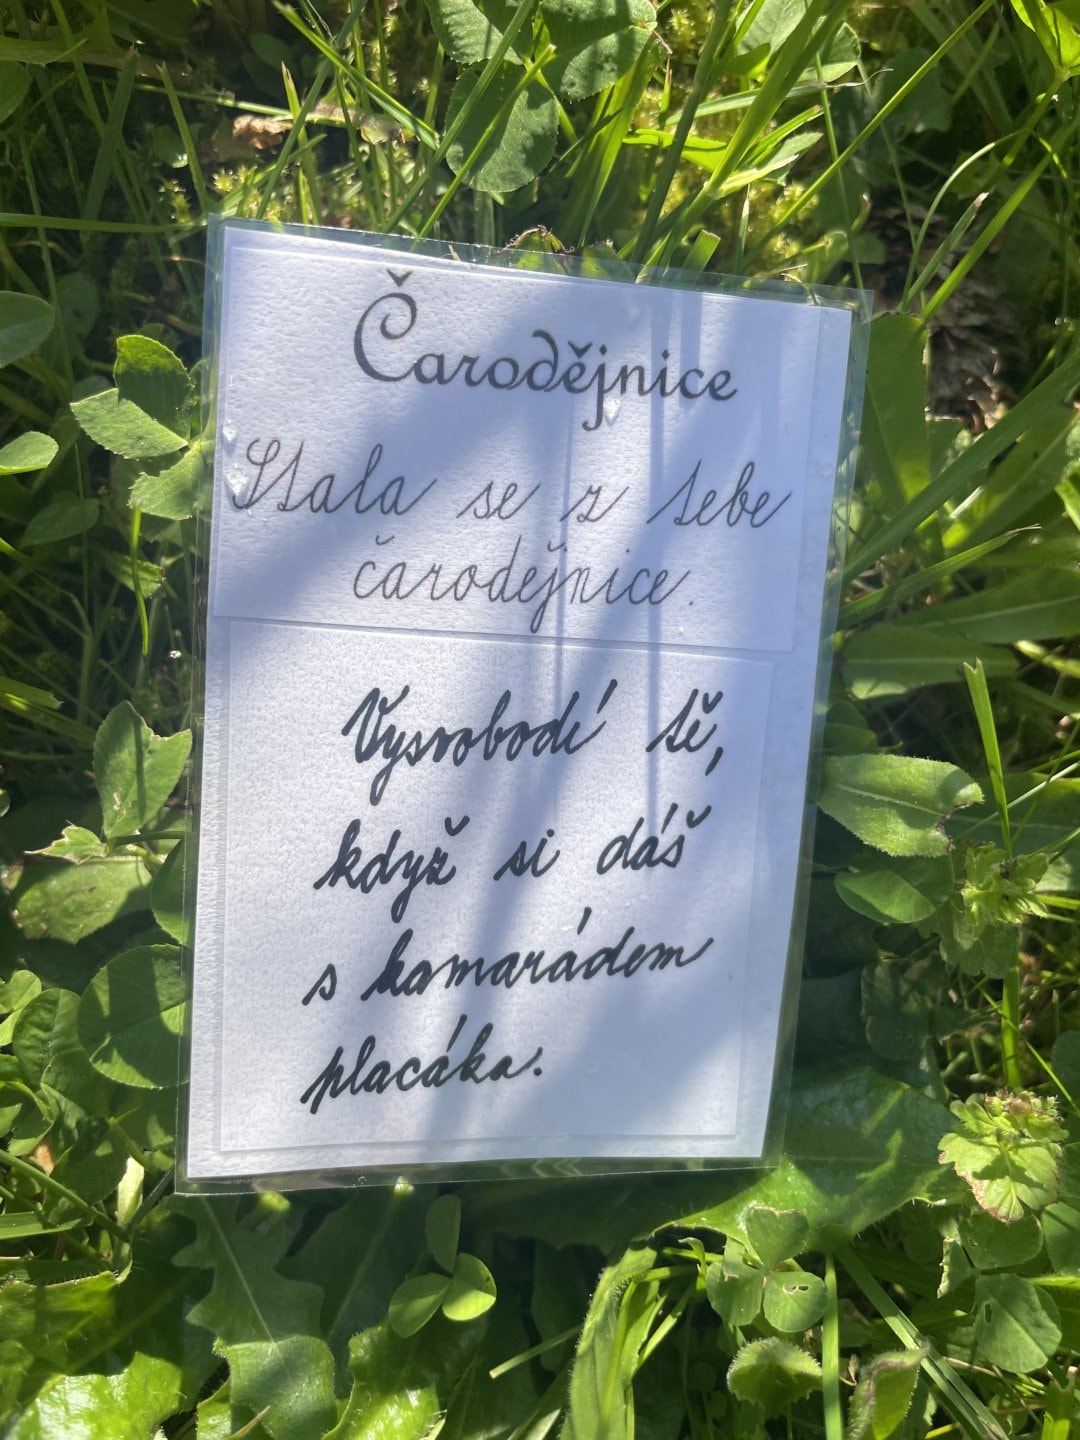 Čarodějnice
Stala se z tebe
čarodějnice.
Vysvobodí tě,
když si dáš
s kamarádem
placáka.